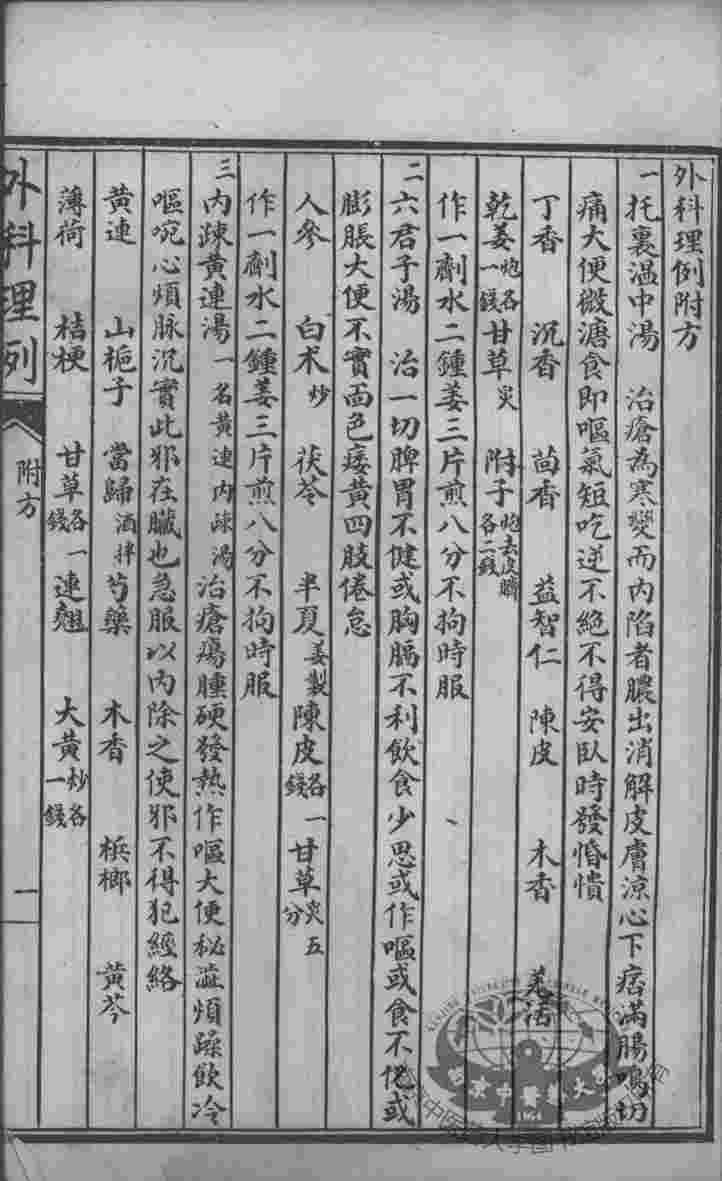 外科理例附方
一托裏溫中湯 治瘡為寒變而內陷者膿出消解皮膚涼心下痞滿腸鳴切
痛大便微溏食即嘔氣短吃逆不絶不得安臥時發惛憒
丁香 沉香 茴香 益智仁 陳皮 木香 羗活
乾姜炮各一錢 甘草炙 附子炮去皮臍各二錢
作一劑水二鍾姜三片煎八分不拘時服
二六君子湯 治一切脾胃不健或胸膈不利飲食少思或作嘔或食不化或
膨脹大便不實面色痿黃四肢倦怠
人參 白朮炒 茯苓 半夏姜製 陳皮各一錢 甘草炙五分
作一劑水二鍾姜三片煎八分不拘時服
三內疎黃連湯一名黃連內疎湯 治瘡瘍腫硬發熱作嘔大便秘澁煩躁飲冷
嘔啘心煩脉沉實此邪在臟也急服以內除之使邪不得犯經絡
黃連 山梔子 當歸酒拌 芍藥 木香 檳榔 黃芩
薄荷 桔梗 甘草各一錢 連翹 大黃炒各一錢
外科理例 附方 一